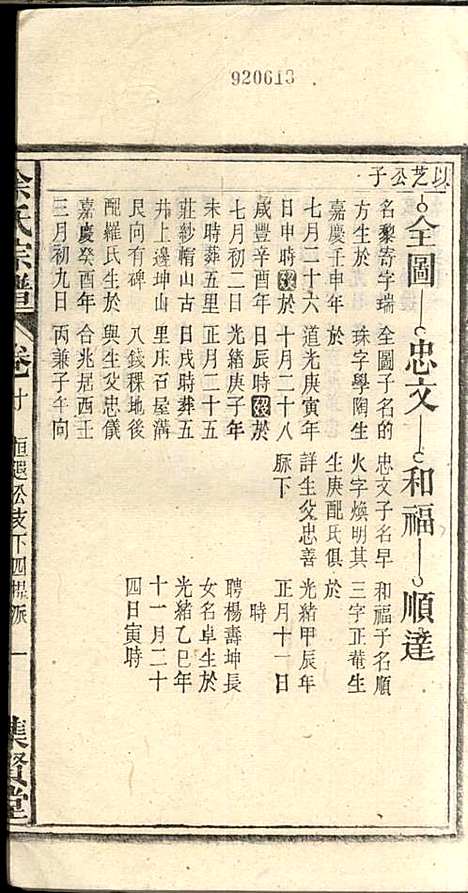 920613
以芝公子
全圖 忠文 和福 順達
名黎寄字瑞
方生於
嘉慶壬申年
七月二十六
日申時歿於
咸豐辛酉年
七月初二日
未時葬五里
莊紗帽山古
井上邊坤山
艮向有碑
配羅氏生於
嘉慶癸酉年
三月初九日
全圖子名的
珠字學陶生
於
道光庚寅年
十月二十八
日辰時歿於
光緒庚子年
正月二十五
日戌時葬五
里庄石屋溝
八錢稞地後
與生父忠儀
合兆居酉王
丙兼子午向
忠文子名早
火字煥明其
生庚配氏俱
詳生父忠善
脈下
和福子名順
三字正菴生
於
光緒甲辰年
正月十一日
時
聘楊壽坤長
女名卓生於
光緒乙巳年
十一月二十
四日寅時
余氏宗譜 卷十 恒遇公支下四 派 一 集賢堂